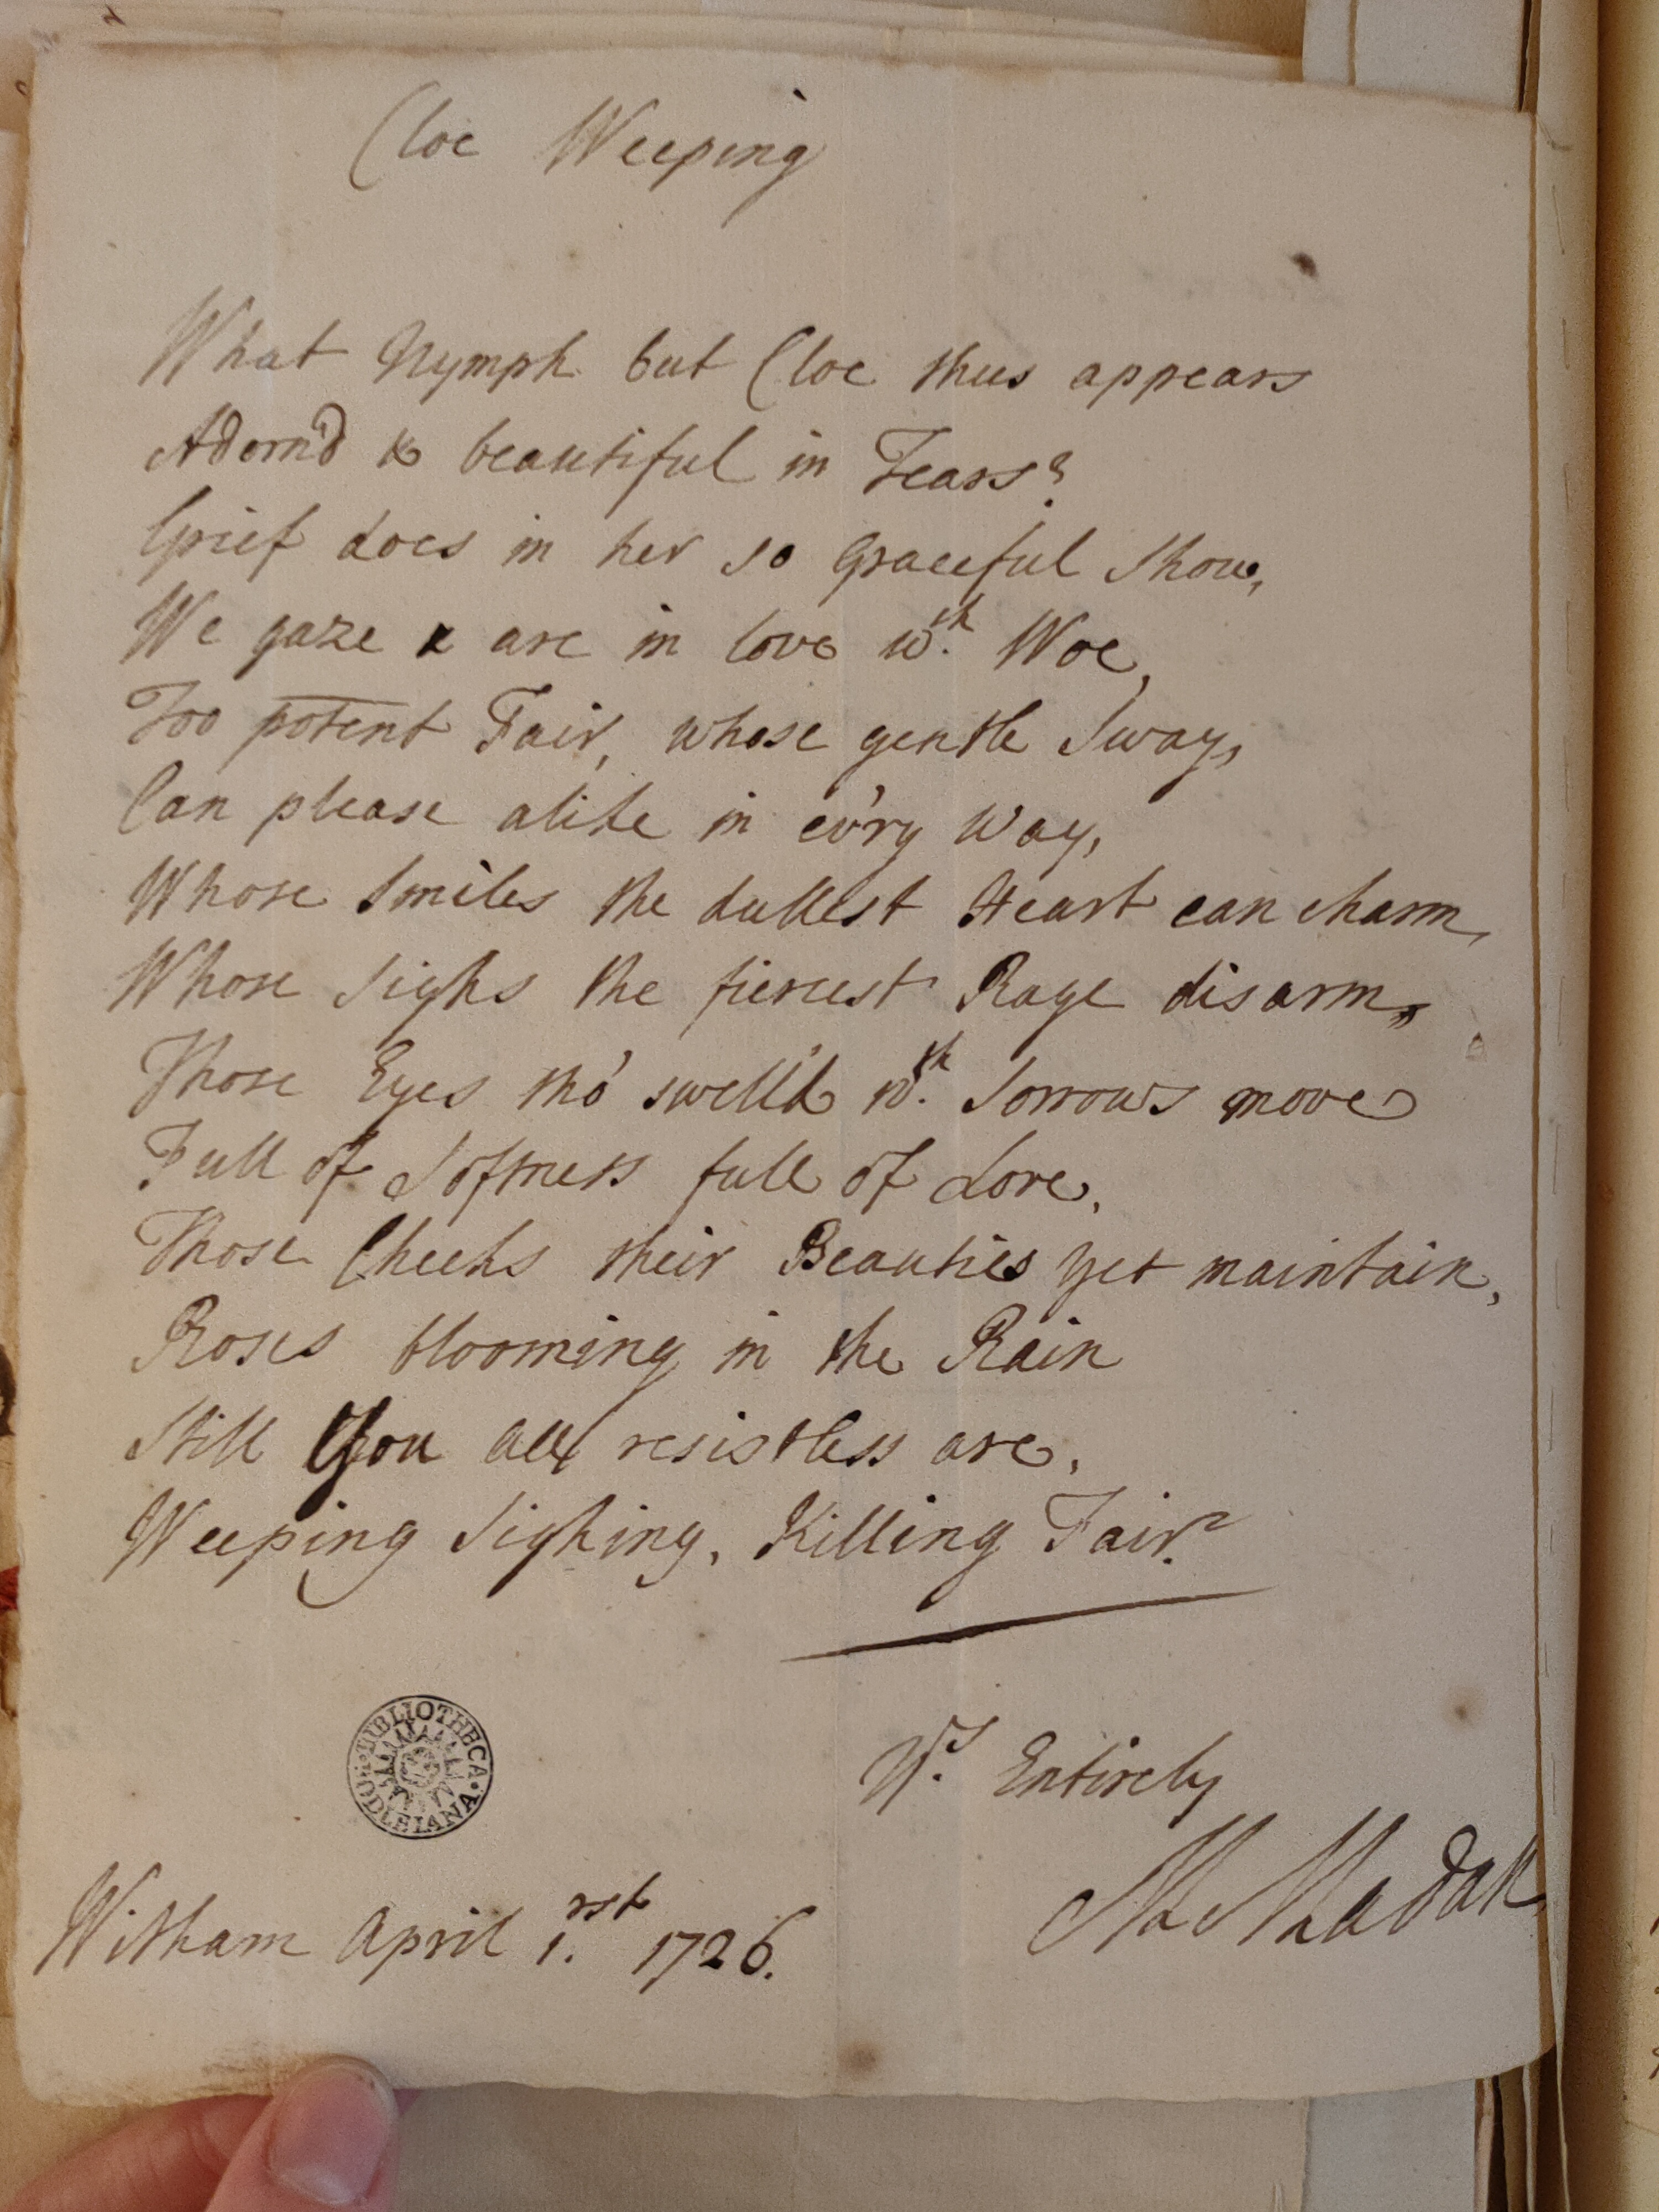 Cloe Weeping
What Nymph but Cloe thus appears
Adorn'd & beautiful in Tears?
Grief does in her so Graceful Show,
We gaze & are in love wth. Woe,
Too potent Fair, whose gentle Sway,
Can please alike in ev'ry Way,
Whose Smiles the dullest Heart can charm,
Whose Sighs the fiercest Rage disarm,
Those Eyes tho' swell'd wth. Sorrows move
Full of Softness full of Love,
Those Cheeks their Beauties yet maintain,
Roses blooming in the Rain
Still You all resistless are,
Weeping Sighing, Killing Fair.
BIBLIOTHECA · BODLEIANA ·
Yrs. Entirely
M Madan
Witham April 1.rst 1726.